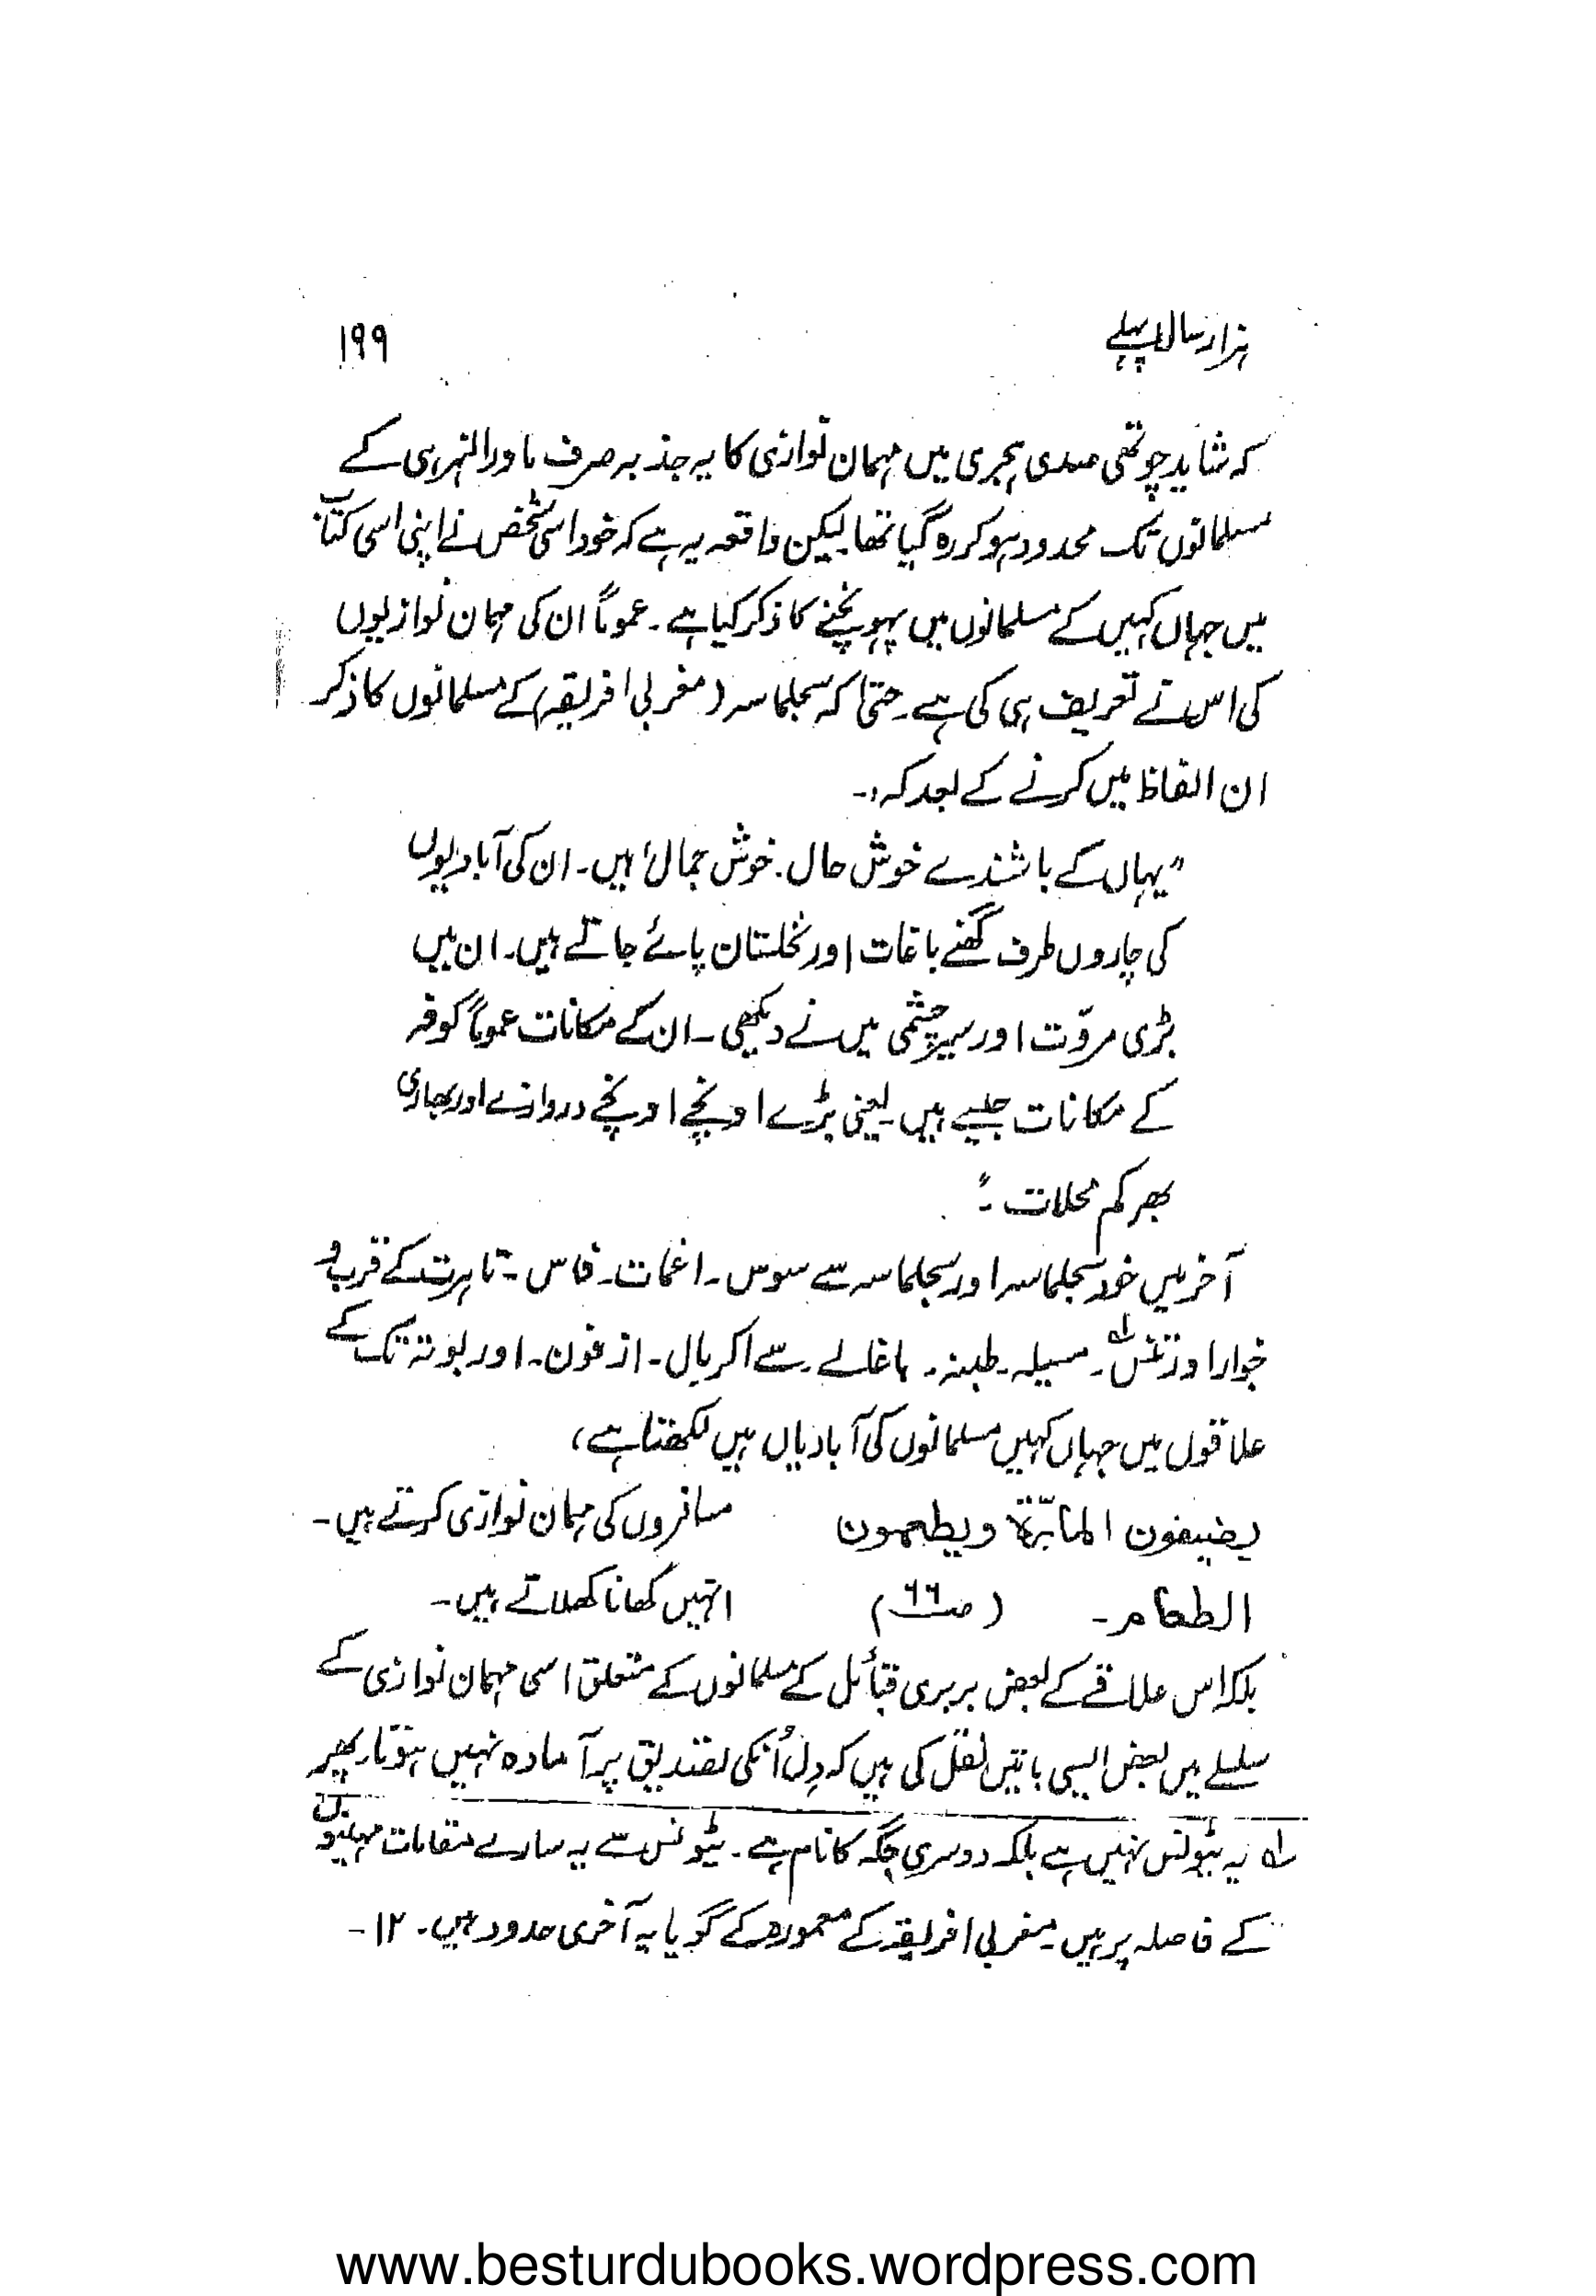 ہزار سال پہلے ۱۹۹
کہ شاید چوتھی صدی ہجری میں مہمان نوازی کا یہ جذبہ صرف ماورالنہر ہی کے
مسلمانوں تک محدود ہو کر رہ گیا تھا لیکن واقعہ یہ ہے کہ خود اسی شخص نے اپنی اسی کتاب
میں جہاں کہیں کے مسلمانوں میں پہونچنے کا ذکر کیا ہے ۔ عموماً ان کی مہمان نوازیوں
کی اس نے تعریف ہی کی ہے ۔ حتیٰ کہ سجلماسہ (مغربی افریقہ) کے مسلمانوں کا ذکر
ان الفاظ میں کرنے کے بعد کہ:۔
"یہاں کے باشندے خوش حال ۔ خوش جمال ہیں ۔ ان کی آبادیوں
کی چاروں طرف گھنے باغات اور نخلستان پائے جاتے ہیں ۔ ان میں
بڑی مروّت اور سیر چشمی میں نے دیکھی ۔ ان کے مکانات عموماً کوفہ
کے مکانات جیسے ہیں ۔ یعنی بڑے اونچے اونچے دروازے اور بھاری
بھر کم محلات ۔"
آخر میں خود سجلماسہ اور سجلماسہ سے سوس ۔ اغمات ۔ فاس ۔ تاہرت کے قرب و
جوار اور تنس لہ ۔ مسیلہ ۔ طبنہ ۔ باغالے ۔ سے اکربال ۔ ازفون ۔ اور بونتہ تک کے
علاقوں میں جہاں کہیں مسلمانوں کی آبادیاں ہیں لکھتا ہے ،
یضیفون المابرّۃ ویطعمون مسافروں کی مہمان نوازی کرتے ہیں ۔
الطعام ۔ (صـ ۶۶) انہیں کھانا کھلاتے ہیں ۔
بلکہ اس علاقے کے بعض بربری قبائل کے مسلمانوں کے متعلق اسی مہمان نوازی کے
سلسلے میں بعض ایسی باتیں نقل کی ہیں کہ دِل اُنکی تصدیق پر آمادہ نہیں ہوتا ۔ پھر
لہ یہ ٹیونس نہیں ہے بلکہ دوسری جگہ کا نام ہے ۔ ٹیونس سے یہ سارے مقامات مہینوں
کے فاصلہ پر ہیں ۔ مغربی افریقہ کے معمورہ کے گویا یہ آخری حدود ہیں ۔ ۱۲ ۔
www.besturdubooks.wordpress.com